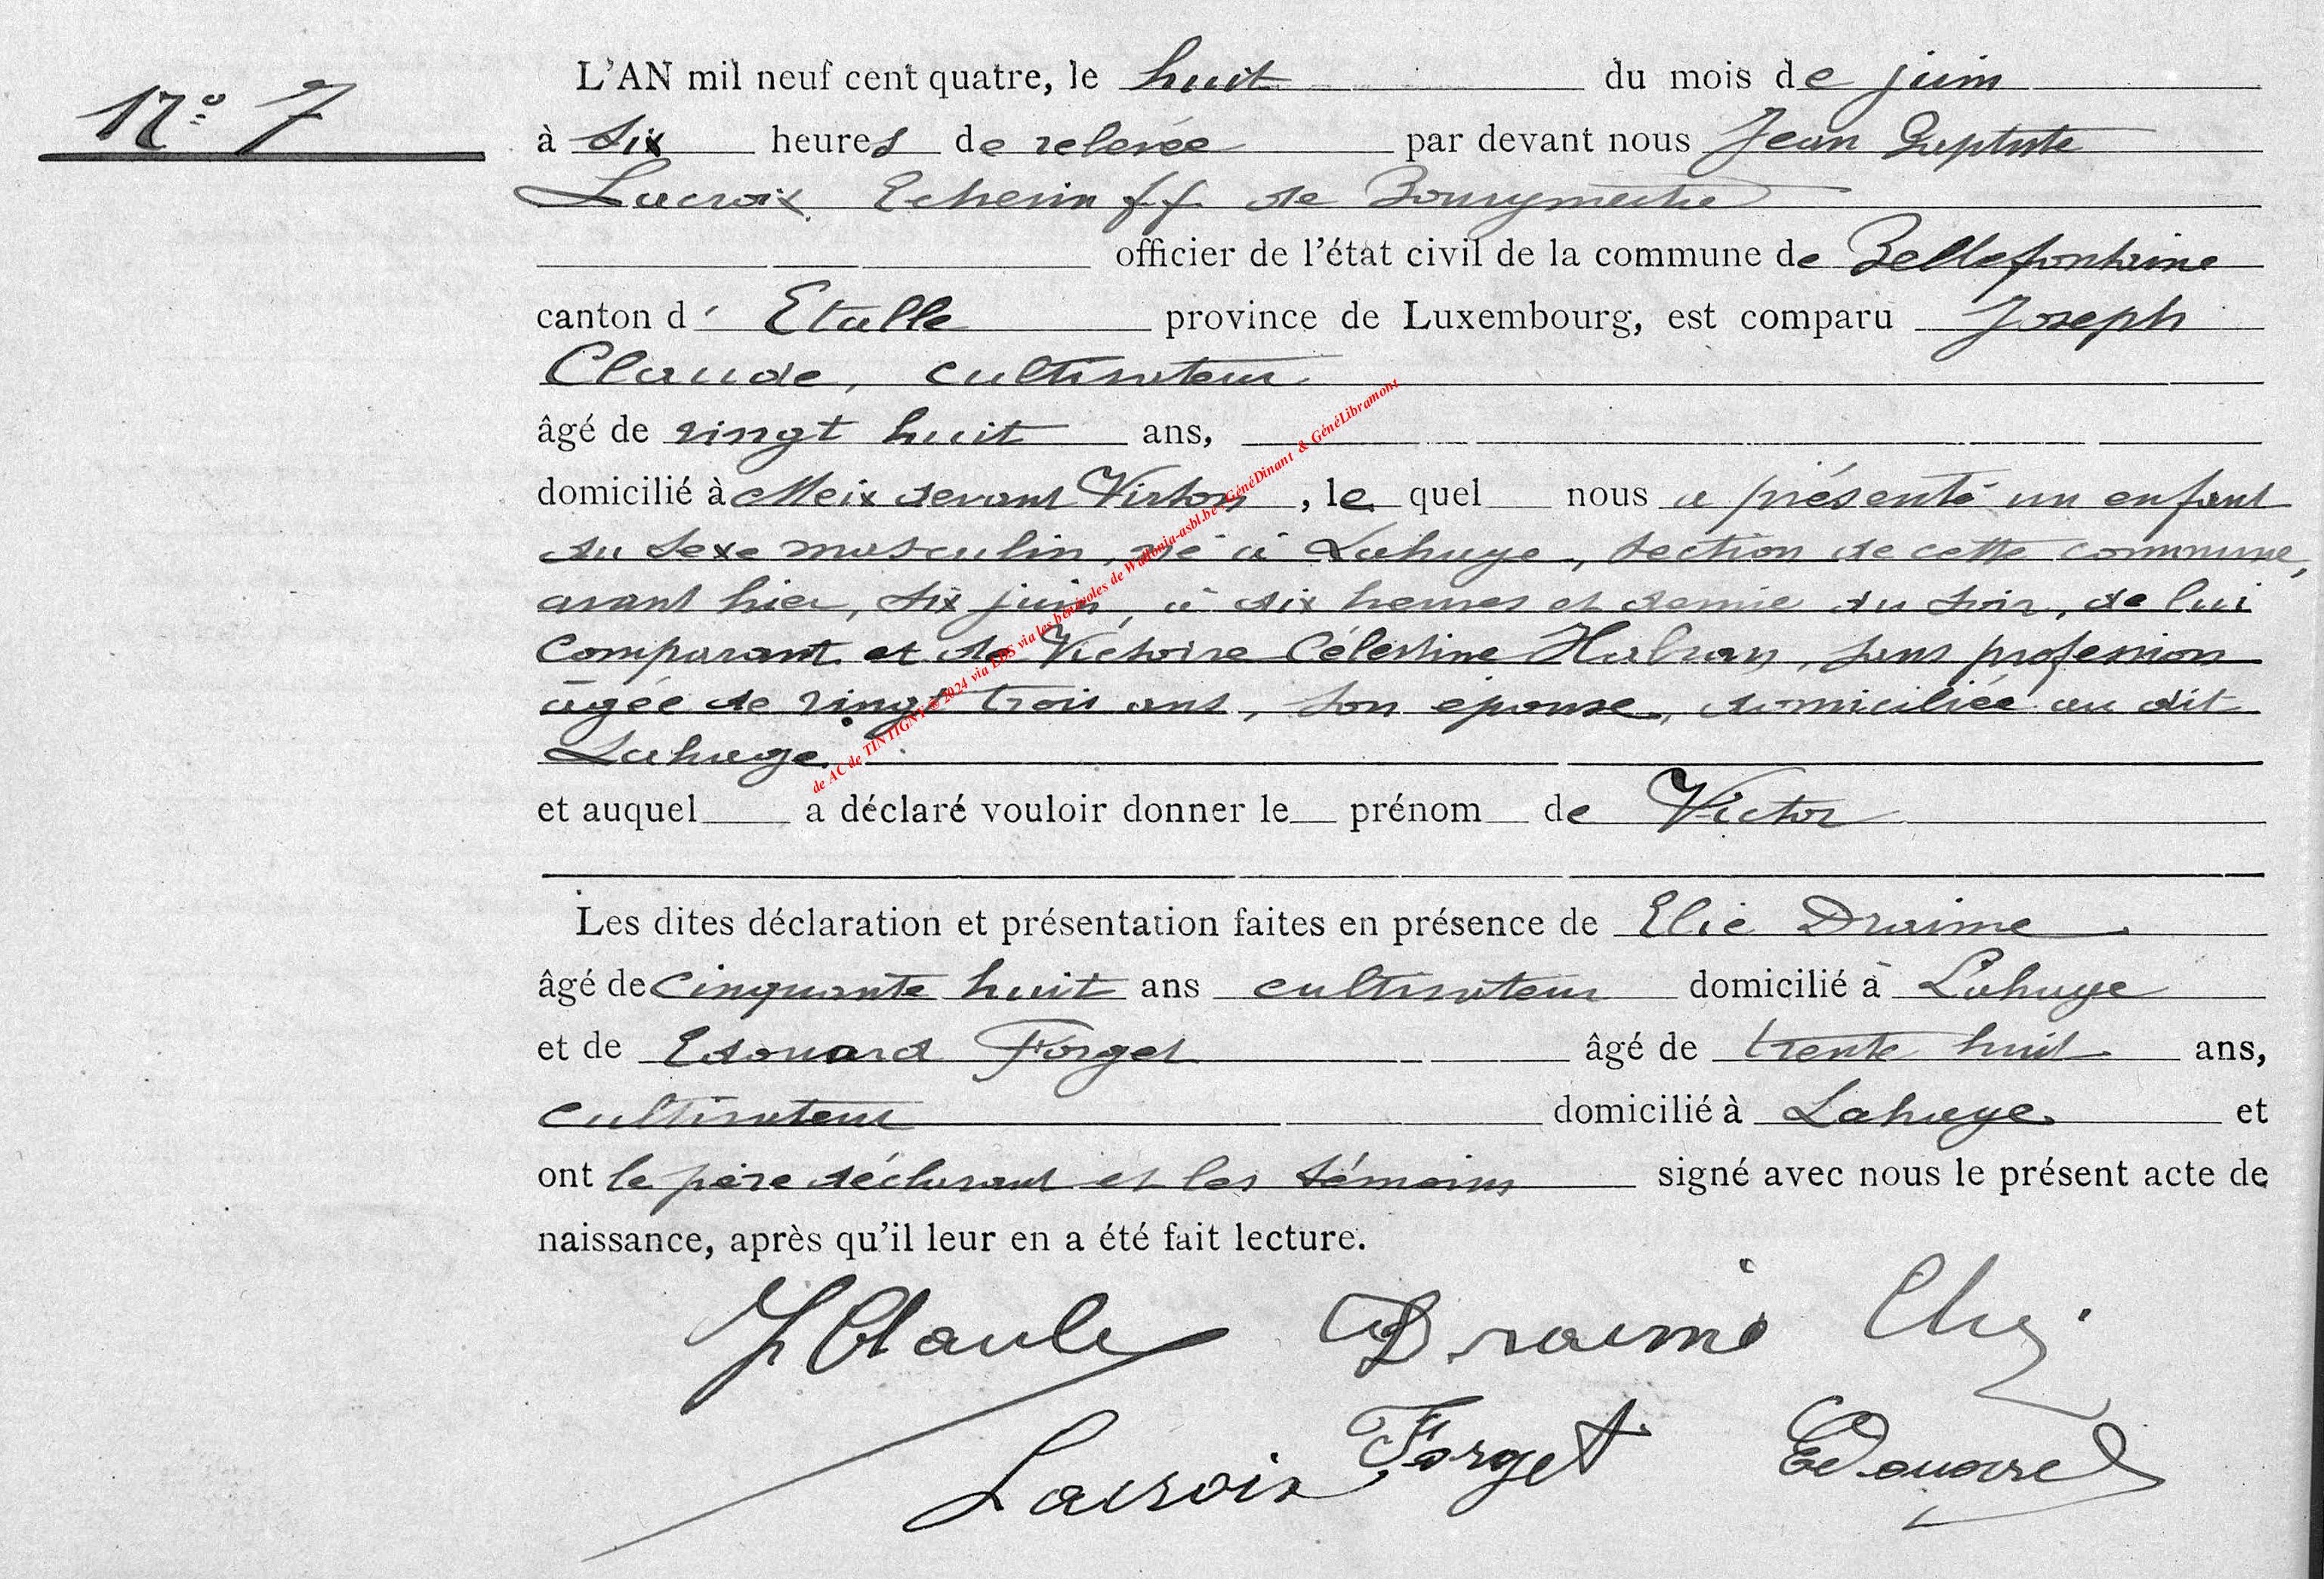 N° 7
L'AN mil neuf cent quatre, le huit du mois de juin
à six heures de relevée par devant nous Jean Baptiste
Lacroix Echevin ff de Bourgmestre
officier de l'état civil de la commune de Bellefontaine
canton d' Etalle province de Luxembourg, est comparu Joseph
Claude, cultivateur
âgé de vingt huit ans,
domicilié à Meix devant Virton, le quel nous a présenté un enfant
du sexe masculin, né à Lahage, section de cette commune,
avant hier, six juin, à dix heures et demie du soir, de lui
comparant et de Victoire Célestine Habran, sans profession
âgée de vingt trois ans, son épouse, domiciliée au dit
Lahage.
et auquel a déclaré vouloir donner le prénom de Victor
Les dites déclaration et présentation faites en présence de Elie Draime
âgé de cinquante huit ans cultivateur domicilié à Lahage
et de Edouard Forget âgé de trente huit ans,
cultivateur domicilié à Lahage et
ont le père déclarant et les témoins signé avec nous le présent acte de
naissance, après qu'il leur en a été fait lecture.
J Claude Draime Elie
Lacroix Forget Edouard
de AC de TINTIGNY © 2024 via LDS via les bénévoles de Wallonia-asbl.be GénéDinant & GénéLibramont